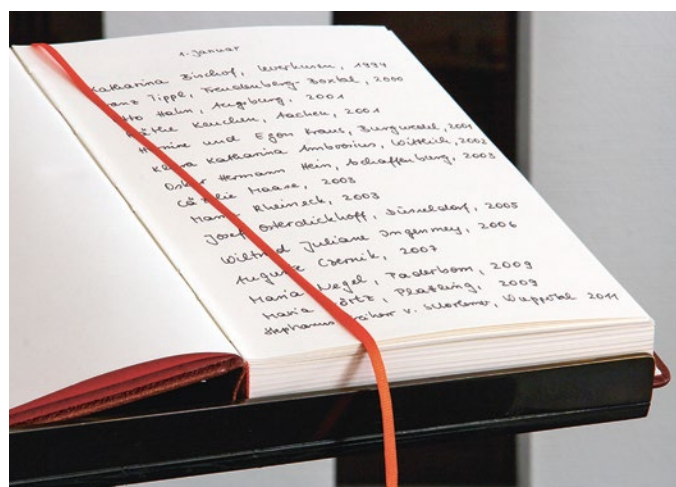 1. Januar
Katharina Bischof, Leverkusen, 1994
Franz Tippl, Freudenberg-Boxtal, 2000
Otto Hahn, Augsburg, 2001
Käthe Keuchen, Aachen, 2001
und Egon Kraus, Burgwedel, 2001
Klara Katharina Ambrosius, Wittlich, 2002
Oskar Hermann Hein, Aschaffenburg, 2003
Cäcilie Haase, 2003
Maria Rheineck, 2003
Josef Osterdickhoff, Düsseldorf, 2005
Wiltrud Juliane Ingenmey, 2006
Auguste Czernik, 2007
Maria Negel, Paderborn, 2009
Maria Plattling, 2009
Stephanus Freiherr v. Wuppertal 2011